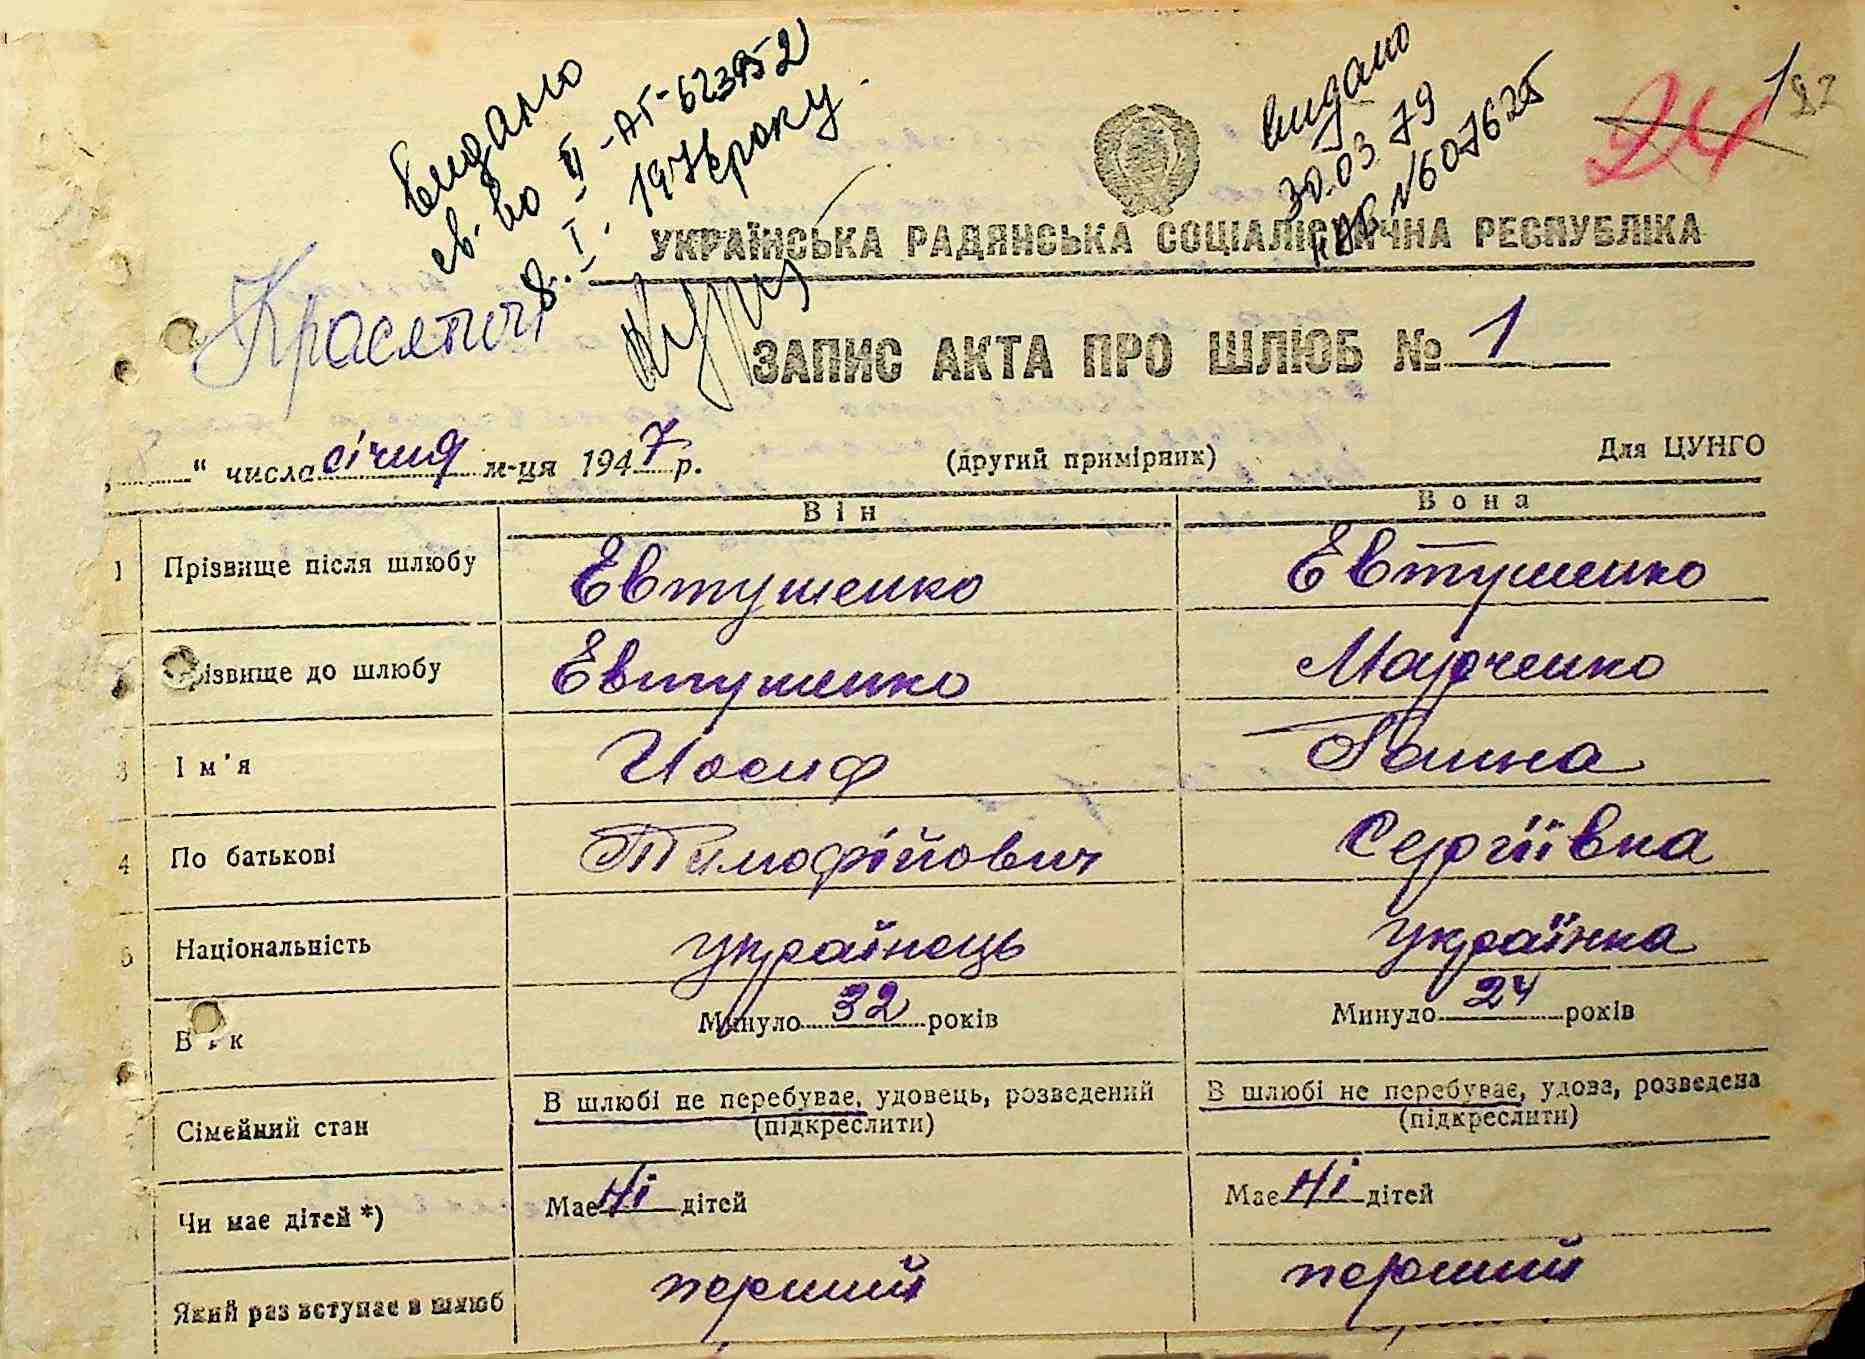 Видано
св. во II-АТ-
8. I. 197 року.
видано
30.03.79
№607625
24
УКРАЇНСЬКА РАДЯНСЬКА СОЦІАЛІСТИЧНА РЕСПУБЛІКА
ЗАПИС АКТА ПРО ШЛЮБ № 1
" числа січня м-ця 1947 р. (другий примірник) Для ЦУНГО
Він Вона
1 Прізвище після шлюбу Евтушенко Евтушенко
Прізвище до шлюбу Евтушенко Марченко
3 Ім'я Иосиф Ганна
4 По батькові Тимофійович Сергіївна
5 Національність українець українка
Вік Минуло 32 років Минуло 24 років
Сімейний стан В шлюбі не перебуває, удовець, розведений В шлюбі не перебуває, удова, розведена
(підкреслити) (підкреслити)
Чи має дітей *) Має ні дітей Має ні дітей
Який раз вступає в шлюб перший перший